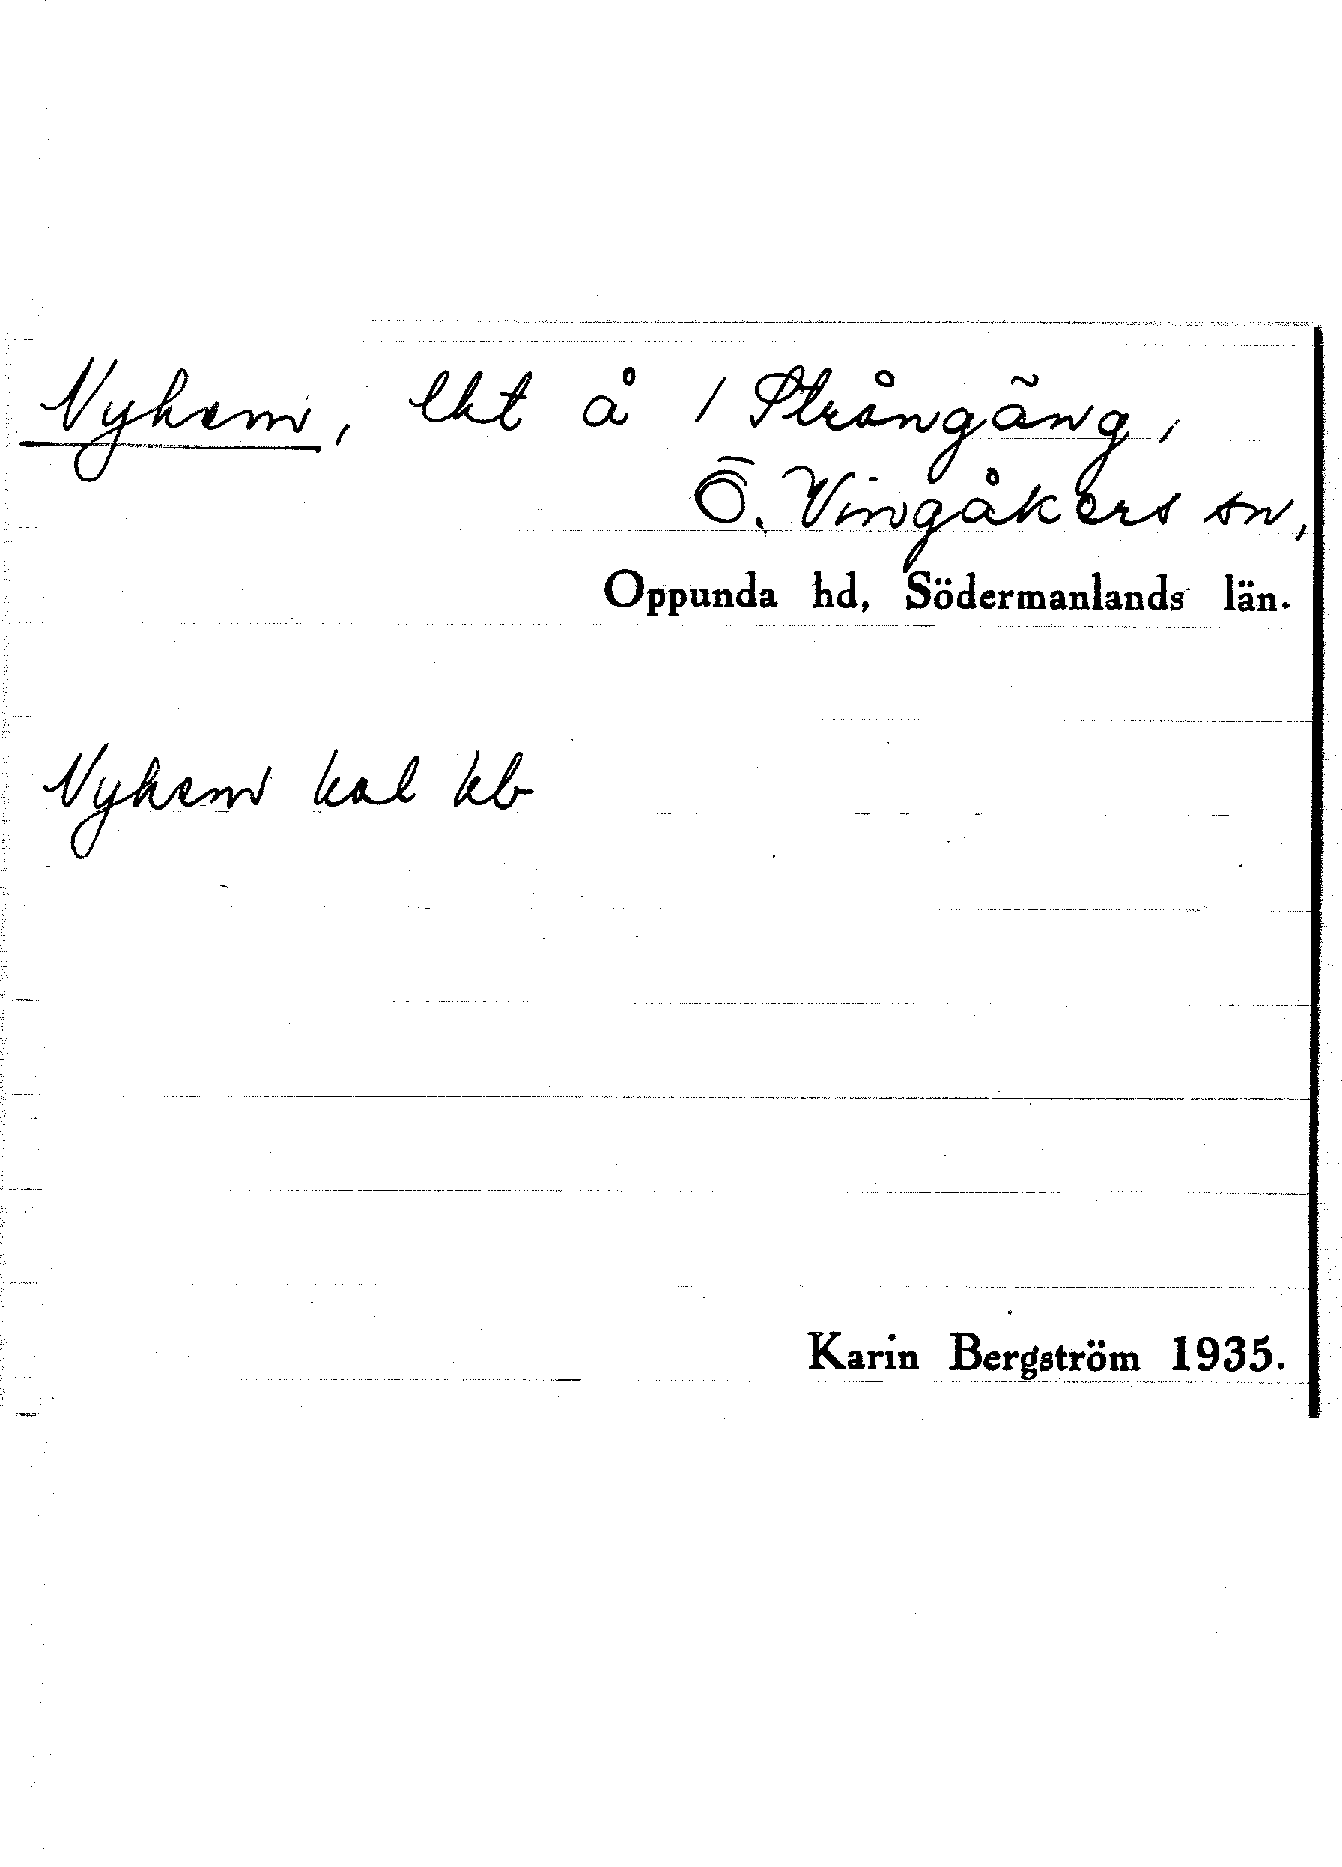 Nyhem, lht å 1 Strångäng,
Ö. Vingåkers sn,
Oppunda hd, Södermanlands län.
Nyhem hal kb
Karin Bergström 1935.